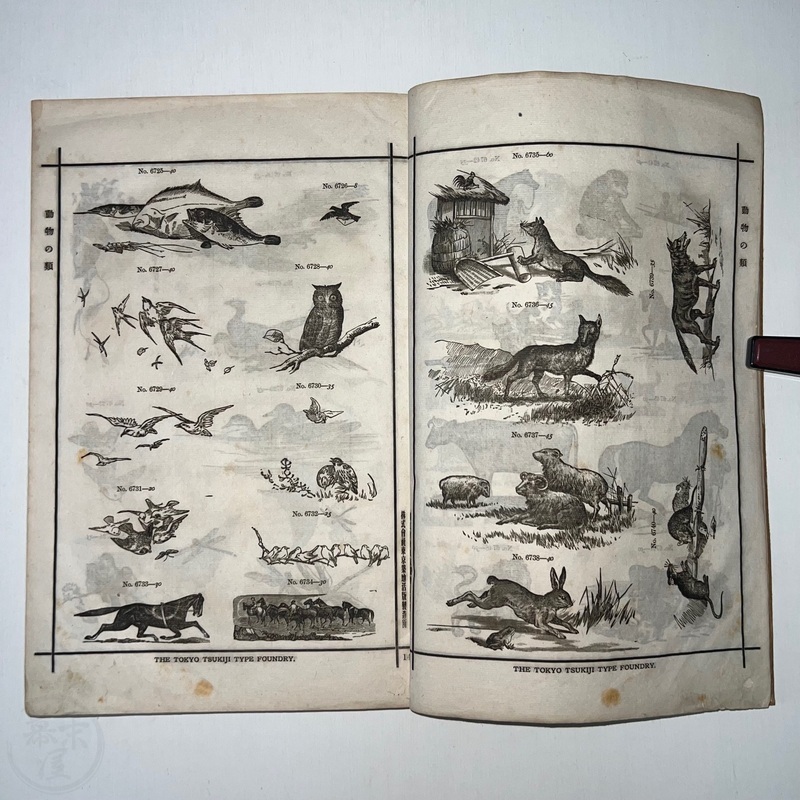 動物の類
No. 6725—40
No. 6726—8
No. 6727—40
No. 6728—40
No. 6729—40
No. 6730—35
No. 6731—20
No. 6732—25
No. 6733—30
No. 6734—30
THE TOKYO TSUKIJI TYPE FOUNDRY.
株式會社東京築地活版製造所
No. 6735—60
No. 6736—45
No. 6737—45
No. 6738—40
No. 6739—35
動物の類
THE TOKYO TSUKIJI TYPE FOUNDRY.